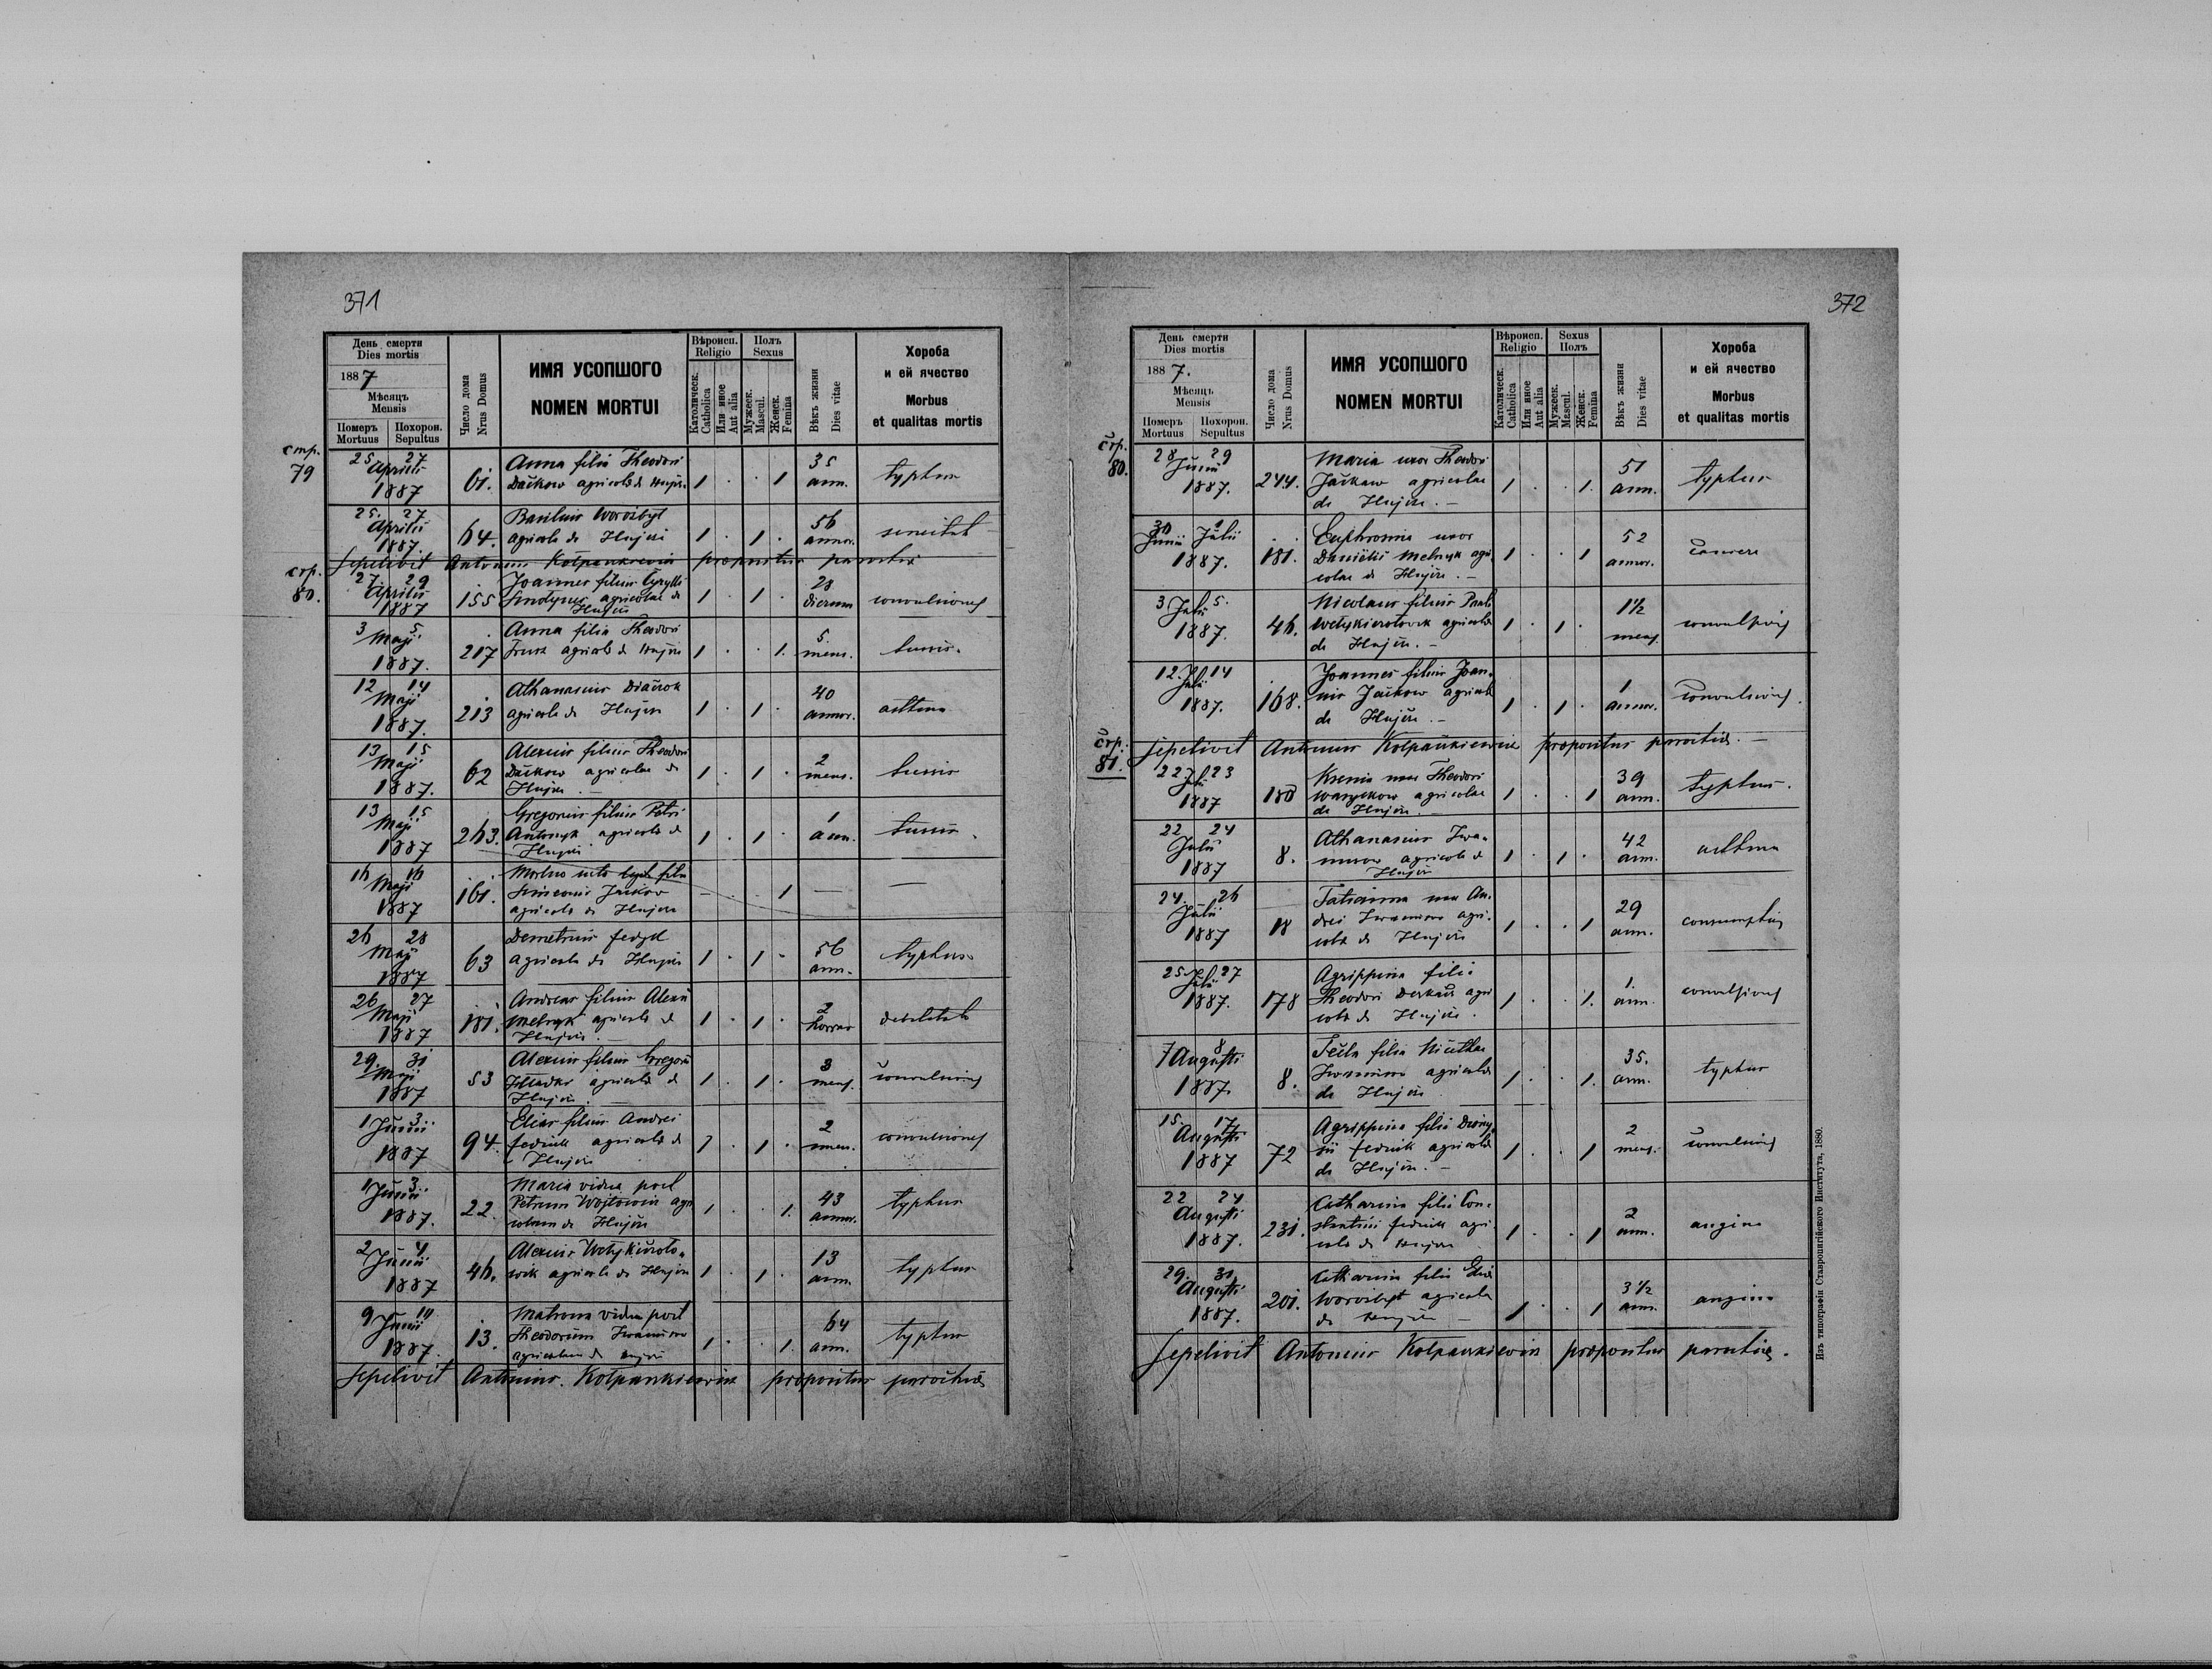 371
День смерти
Dies mortis
1887
Мѣсяцъ
Mensis
Померъ Mortuus
Похорон. Sepultus
Число дома
Nrus Domus
ИМЯ УСОПШОГО
NOMEN MORTUI
Вѣроисп.
Religio
Католическ.
Catholica
Или иное
Aut alia
Полъ
Sexus
Мужеск.
Mascul.
Женск.
Femina
Вѣкъ жизни
Dies vitae
Хороба
и ей ячество
Morbus
et qualitas mortis
стр.
79
25 27
Aprilis
1887
61.
Anna filia Theodori
Dačkow agricolae de Hujcze
1 . . 1
35
ann.
typhus
25. 27
Aprilis
1887
64.
Basilius Worobyt
agricola de Hujcze
1 . 1 .
56
annor.
Sepelivit Antonius Kolpaczkiewicz propositus parochiae
стр.
80.
27 29
Aprilis
1887
155
Joannes filius Cyrylli
agricolae de
Hujcze
1 . 1 .
28
dierum
convulsiones
3 5
Maji
1887.
217
Anna filia Theodori
agricolae de Hujcze
1 . . 1.
5
mens.
tussis.
12 14
Maji
1887.
213
Athanasius Diaczok
agricola de Hujcze
1 . 1 .
40
annor.
asthma
13 15
Maji
1887.
62
Alexius filius Theodori
Dačkow agricolae de
Hujcze.
1 . 1 .
2
mens.
tussis
13 15
Maji
1887
263.
Gregorius filius Petri
Antonyk agricolae de
Hujcze
1 . 1 .
1
ann.
tussis.
16 16
Maji
1887
161.
Simeonis Jaćkow
agricolae de Hujcze
1
26 28
Maji
1887
63
Demetrius Fedyk
agricola de Hujcze
1 . 1 .
56
ann.
typhus
26 27
Maji
1887
181.
Andreas filius Alexii
Melnyk agricolae de
Hujcze.
1 . 1 .
2
horrar
29. 31
Maji
1887
53
Alexius filius Gregorii
agricolae de
Hujcze
1 . 1 .
3
mens.
convulsiones
1 3
Junii
1887
94.
Elias filius Andrei
Fedniuk agricolae de
Hujcze
1 . 1 .
2
mens.
convulsiones
1 3.
Junii
1887.
22.
Maria vidua post
Petrum Wojtowicz agri
colam de Hujcze
1 . . 1.
43
annor.
typhus
2 4
Junii
1887
46.
Alexius
agricola de Hujcze
1 . 1 .
13
ann.
typhus
9 11
Junii
1887.
13.
Matrona vidua post
Theodorum Iwanusiw
agricolam de Hujcze
1 . . 1.
64
ann.
typhus
Sepelivit Antonius Kolpaczkiewicz propositus parochiae
372
День смерти
Dies mortis
1887.
Мѣсяцъ
Mensis
Померъ Mortuus
Похорон. Sepultus
Число дома
Nrus Domus
ИМЯ УСОПШОГО
NOMEN MORTUI
Вѣроисп.
Religio
Католическ.
Catholica
Или иное
Aut alia
Sexus
Полъ
Мужеск.
Mascul.
Женск.
Femina
Вѣкъ жизни
Dies vitae
Хороба
и ей ячество
Morbus
et qualitas mortis
стр.
80.
28 29
Junii
1887.
244.
Maria uxor Theodori
Jaćkow agricolae
de Hujcze. –
1 . . 1.
51
ann.
typhus
30 1
Junii Julii
1887.
181.
Euphrosina uxor
Danielis Melnyk agri
colae de Hujcze. –
1 . . 1
52
annor.
3 5.
Julii
1887.
46.
Nicolaus filius Pauli
agricolae
de Hujcze. –
1 . 1 .
1½
mens.
convulsiones
12. 14
Julii
1887.
168.
Joannes filius Joan-
nis Jaćkow agricolae
de Hujcze. –
1 . 1 .
1
annor.
convulsiones.
стр.
81.
Sepelivit Antonius Kolpaczkiewicz propositus parochiae. –
22 23
Juli
1887
180
Ksenia uxor Theodori
agricolae
de Hujcze.
1 . . 1
39
ann.
typhus.
22 24
Julii
1887
8.
Athanasius Iwa-
nusiw agricola de
Hujcze
1 . 1 .
42
ann.
asthma
24. 26
Julii
1887
18
Tatianna uxor An-
drei Iwanusiw agri-
colae de Hujcze
1 . . 1
29
ann.
25 27
Julii
1887.
178
Agrippina filia
Theodori Derkacz agri
colae de Hujcze.
1 . . 1.
1.
ann.
convulsiones
7 8
Augusti
1887.
8.
Tecla filia Nicetae
Iwanusiw agricolae
de Hujcze
1 . . 1.
35.
ann.
typhus
15 17
Augusti
1887
72
Agrippina filia Diony-
sii Fedniuk agricolae
de Hujcze. –
1 . . 1
2
mens.
convulsiones
22 24
Augusti
1887.
231.
Catharina filia Con-
stantini Fedniuk agri
colae de Hujcze
1 . . 1
2
ann.
angina
29. 31
Augusti
1887.
201.
Catharina filia Eliae
Worobyt agricolae
de Hujcze –
1 . . 1
3½
ann.
angina
Sepelivit Antonius Kolpaczkiewicz propositus parochiae.
Изъ типографіи Ставропигійского Института, 1880.